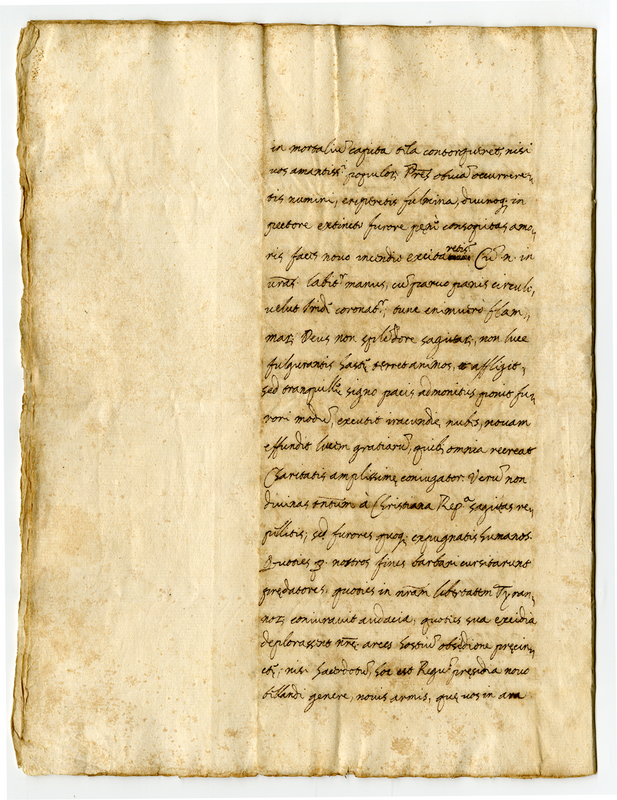 in mortaliũ capita tela contorqueret, nisi
vos amantiss.ᶦ populor, Pr̃es obviã occurrere,,
tis numini, eriperetis fulmina, divinoq; in
pectore extincto furore penè consopitas amo,
ris faces novo incendio excitaretis. Cũ n. in
vr̃as labit.ʳ manus, cũ parvo panis circuli,
velut Irid. coronat.ʳ; tunc enimvero flam,,
mat, Deus non splẽdore sagittæ, non luce
fulgurantis hastę terret animos, et affligit,
sed tranquillo signo pacis admonitus ponit fu,,
rori modũ, excutit iracundię nubes, novam
effundit lucem gratiarũ, quib; omnia recreat
Charitatis amplissimę coniugator. Verũ non
divinas tantum à Christiana Rep.ᵃ sagittas re,,
pellitis; sed furores quoq; expugnatis humanos.
Quoties nostros fines barbari cursitarunt
predatores, quoties in nr̃am libertatem Tyran,,
nor, coniuravit audacia, quoties sua excidia
deplorassent nr̃ę arces hostiũ obsidione precin,,
ctę; nisi Sacerdotũ, hoc est Regũ presidia novo
bellandi genere, novis armis, quę vos in ara